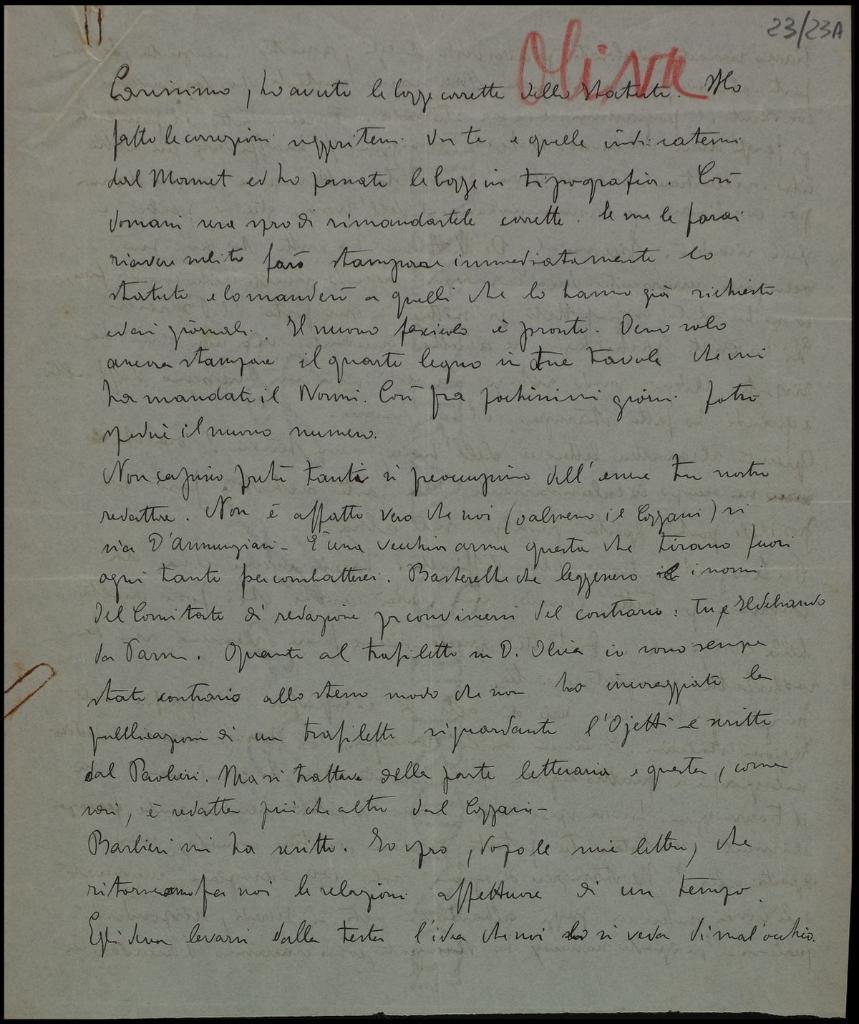 23/23A
Oliva
Carissimo, ho avuto le bozze corrette dello Statuto. Ho
fatto le correzioni suggeritemi da te e quelle indicatemi
dal Monnet ed ho passato le bozze in tipografia. Così
domani sera spero di rimandartele corrette. Se me le farai
riavere subito farò stampare immediatamente lo
statuto e lo manderò a quelli che lo hanno già richiesto
ed ai giornali. Il nuovo fascicolo è pronto. Devo solo
ancora stampare il quarto legno in due tavole che mi
ha mandato il Nonni. Così fra pochissimi giorni potrò
spedire il nuovo numero.
Non capisco perché tanti si preoccupino dell'essere tu nostro
redattore. Non è affatto vero che noi (o almeno il Cozzani) si
sia D'Annunziani - È una vecchia arma questa che tirano fuori
ogni tanto per combatterci. Basterebbe che leggessero i nomi
del Comitato di redazione per convincersi del contrario: tu e Ildebrando
da Parma. Quanto al trafiletto su D. Oliva io sono sempre
stato contrario allo stesso modo che non ho incoraggiato la
pubblicazione di un trafiletto riguardante l'Ojetti e scritto
dal Paolieri. Ma si trattava della parte letteraria e questa, come
sai, è redatta più che altro dal Cozzani -
Barbieri mi ha scritto. Io spero, dopo le mie lettere, che
ritorneranno fra noi le relazioni affettuose di un tempo.
Egli deve levarsi dalla testa l'idea che noi lo si veda di mal'occhio.